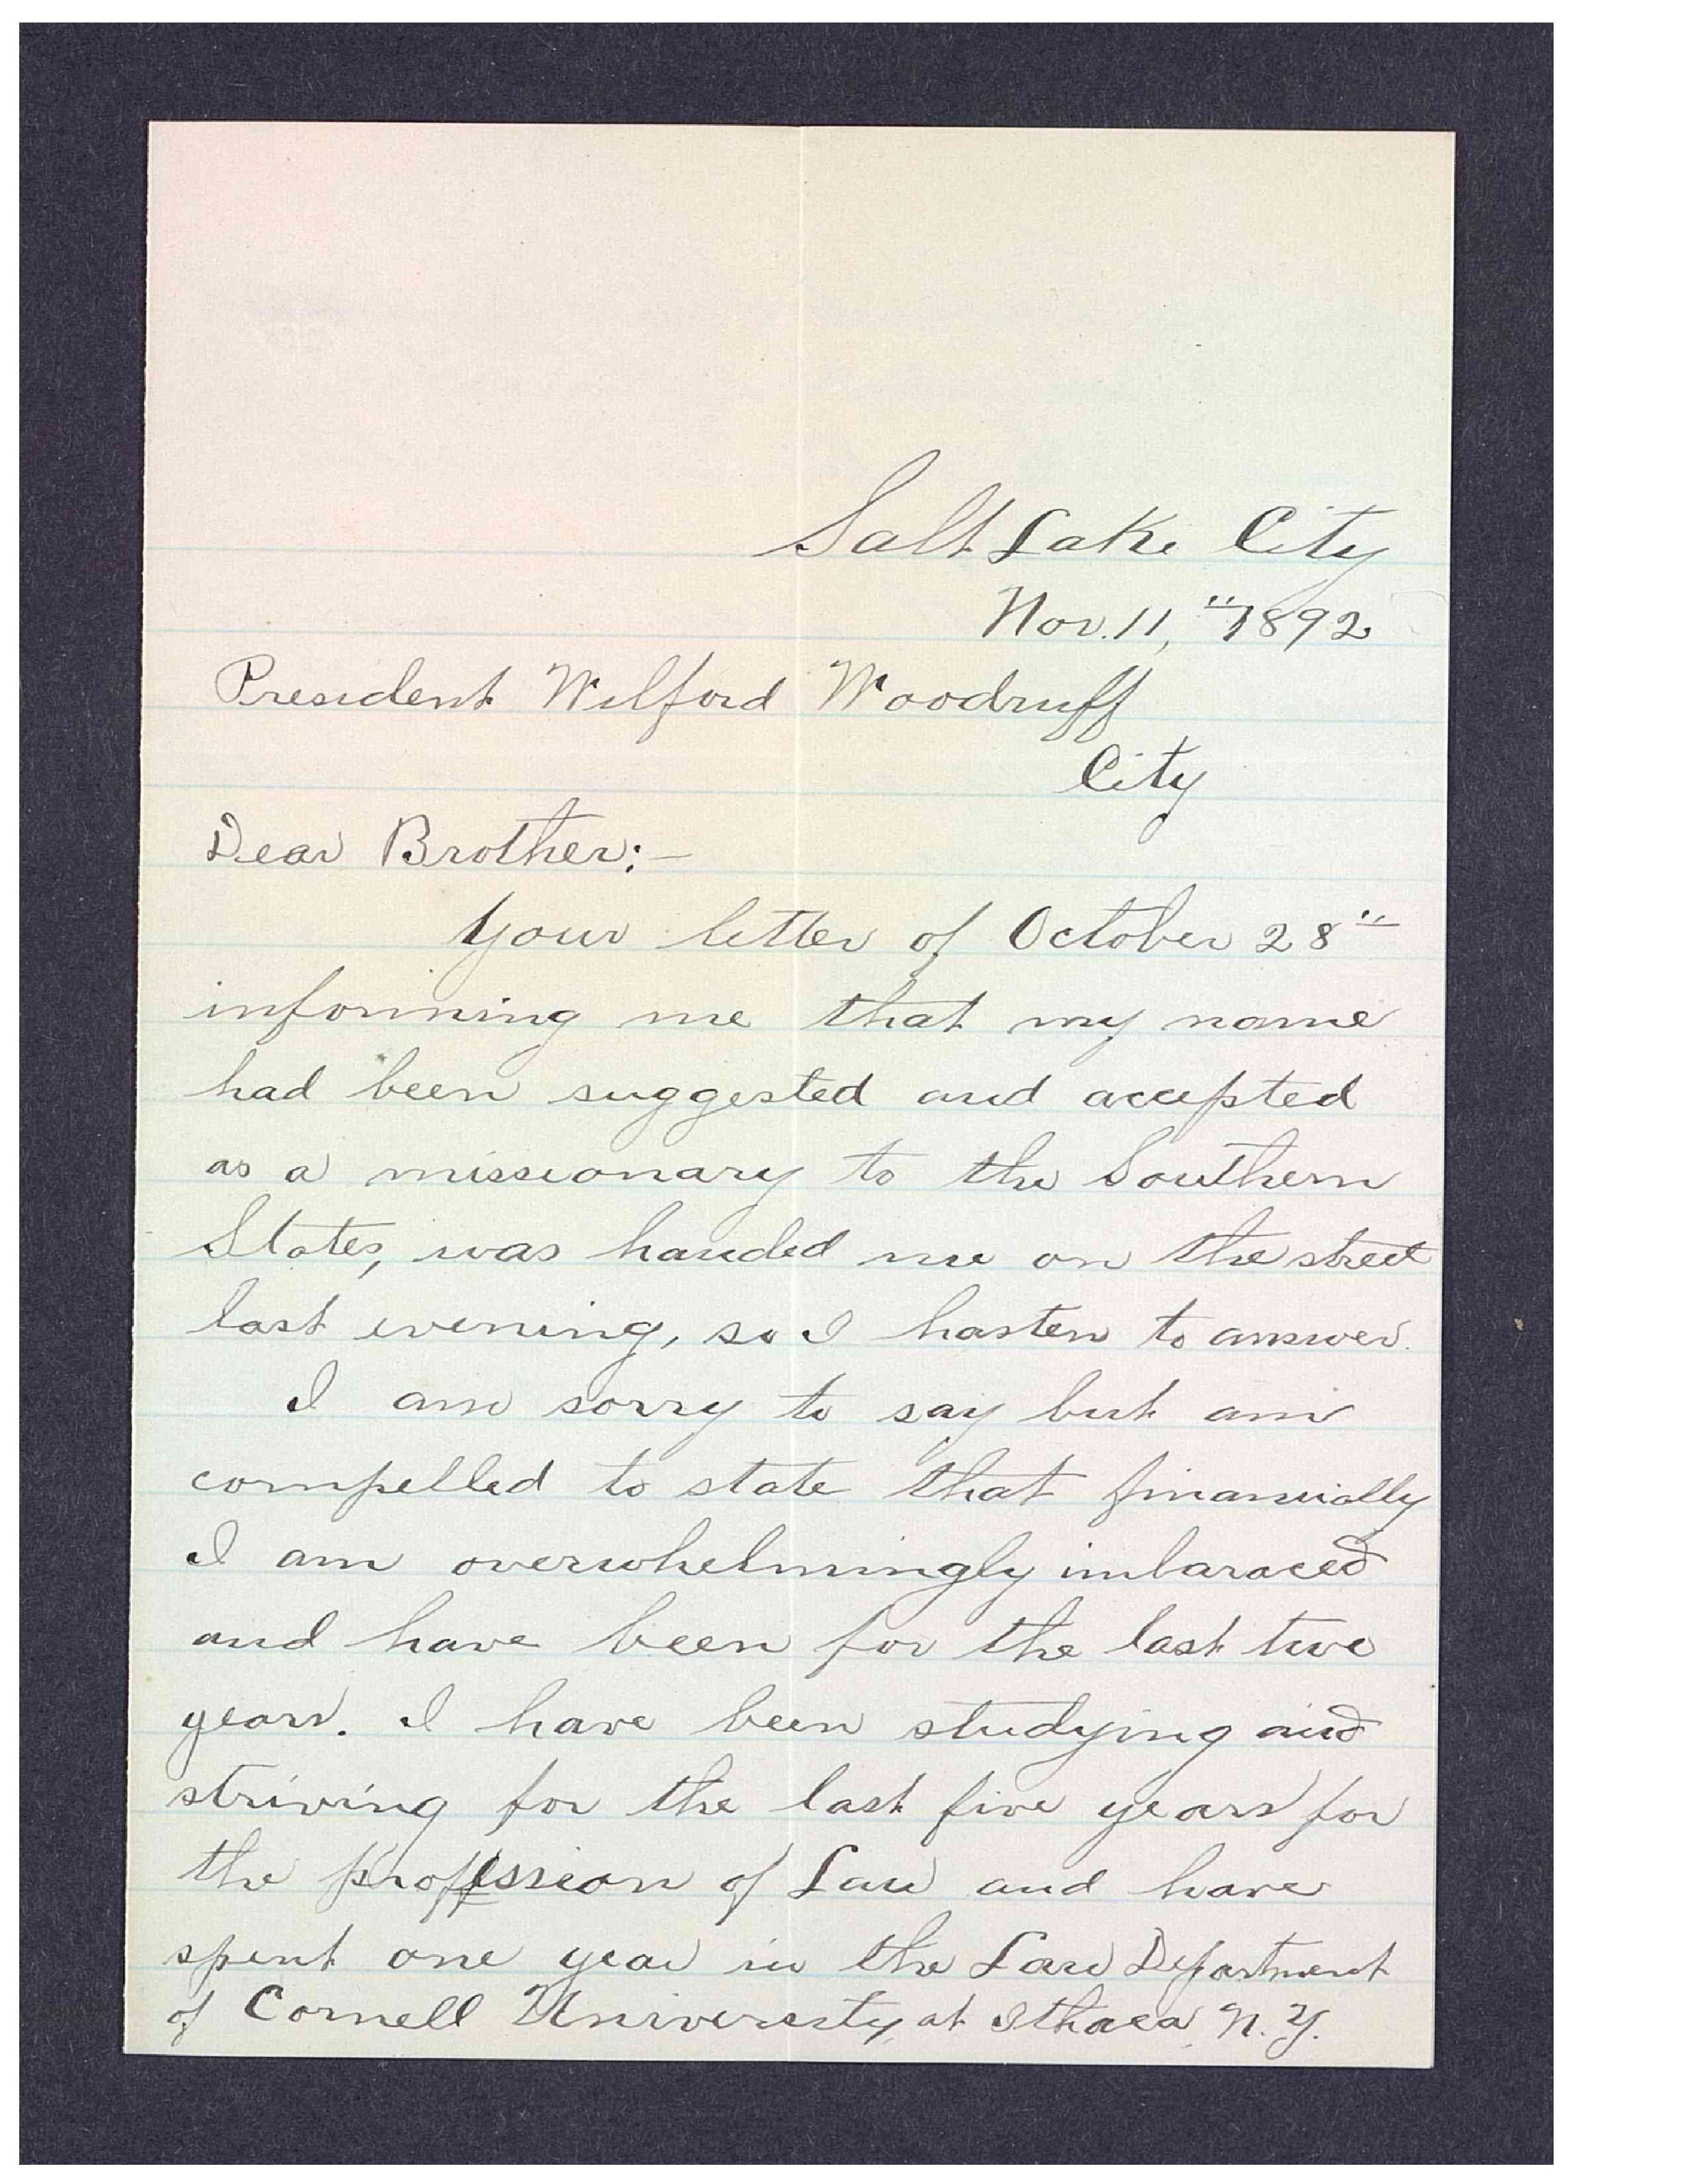 Salt Lake City
Nov. 11, " 1892
President Wilford Woodruff
City
Dear Brother:—
Your letter of October 28"
informing me that my name
had been suggested and accepted
as a missionary to the Southern
States, was handed me on the street
last evening, so I hasten to answer.
I am sorry to say but am
compelled to state that financially
I am overwhelmingly imbaraced
and have been for the last two
years. I have been studying and
striving for the last five years for
the proffession of Law and have
spent one year in the Law Department
of Cornell Univeresty, at Ithaca, N.Y.